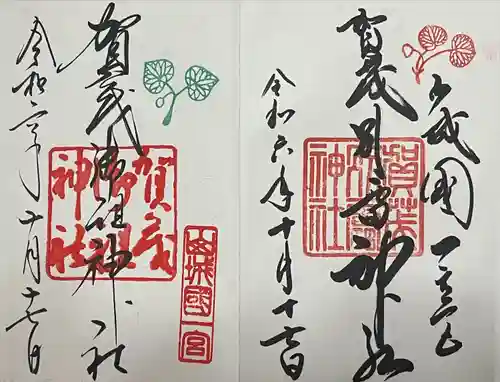 賀茂別雷神社
山城国一宮
令和六年十月十七日
賀茂別雷神社
賀茂御祖神社
令和六年十月十七日
賀茂御祖神社
山城國一宮